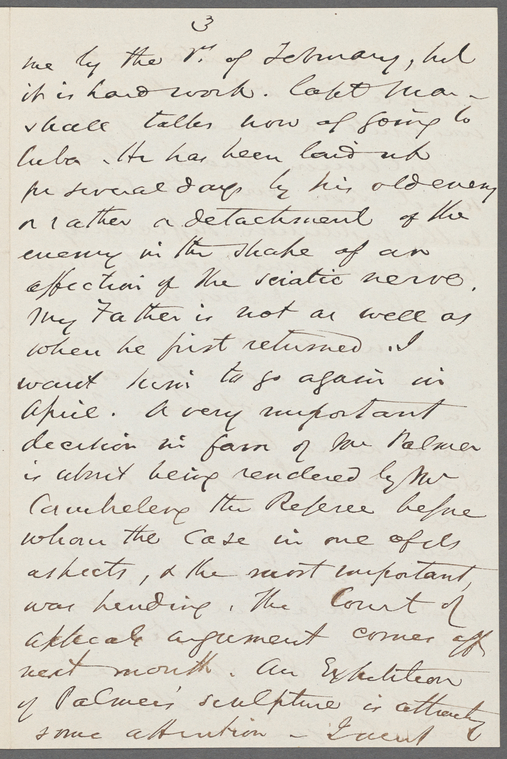 3
me by the 1st of February, but
it is hard work. Capt Mar-
shall talks now of going to
Cuba. He has been laid up
for several days by his old enemy
or rather a detachment of the
enemy in the shape of an
affection of the sciatic nerve.
My Father is not as well as
when he first returned. I
want him to go again in
April. A very important
decision in favor of Mr Palmer
is about being rendered by Mr
Cambreleng the Referee before
whom the Case in one of its
aspects, & the most important,
was pending. The Court of
appeals argument comes off
next month. An Exhibition
of Palmer's sculpture is attracting
some attention - I went